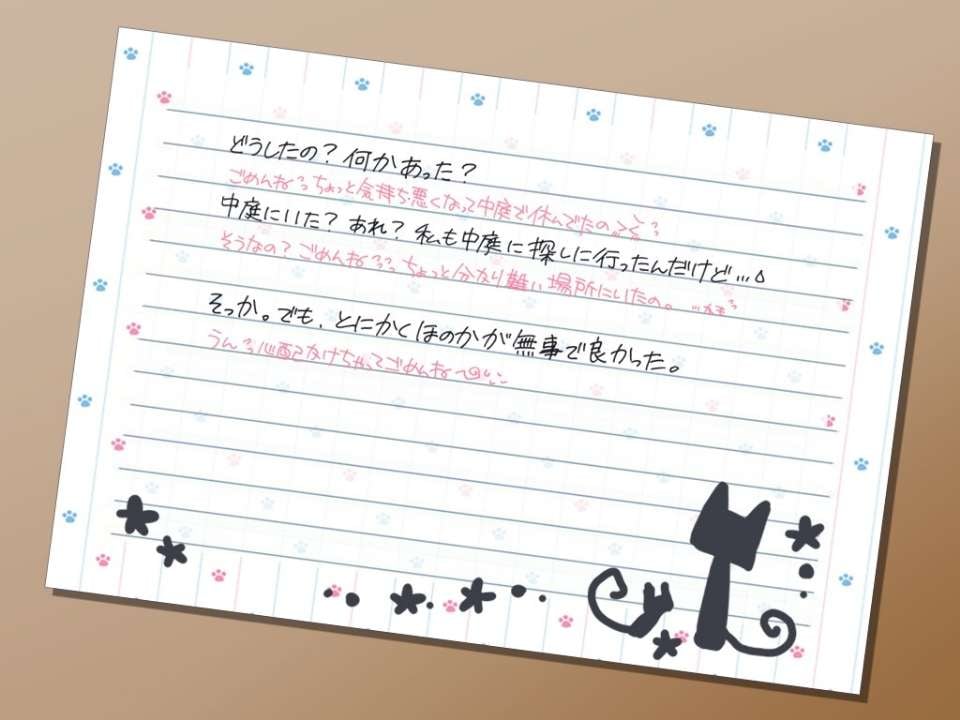 どうしたの？何かあった？
ごめんねっちょっと気持ち悪くなって中庭で休んでたの
中庭にいた？あれ？私も中庭に探しに行ったんだけど…
そうなの？ごめんね ちょっと分かり難い場所にいたの。…かも
そっか。でも、とにかくほのかが無事で良かった。
うん 心配かけちゃってごめんね